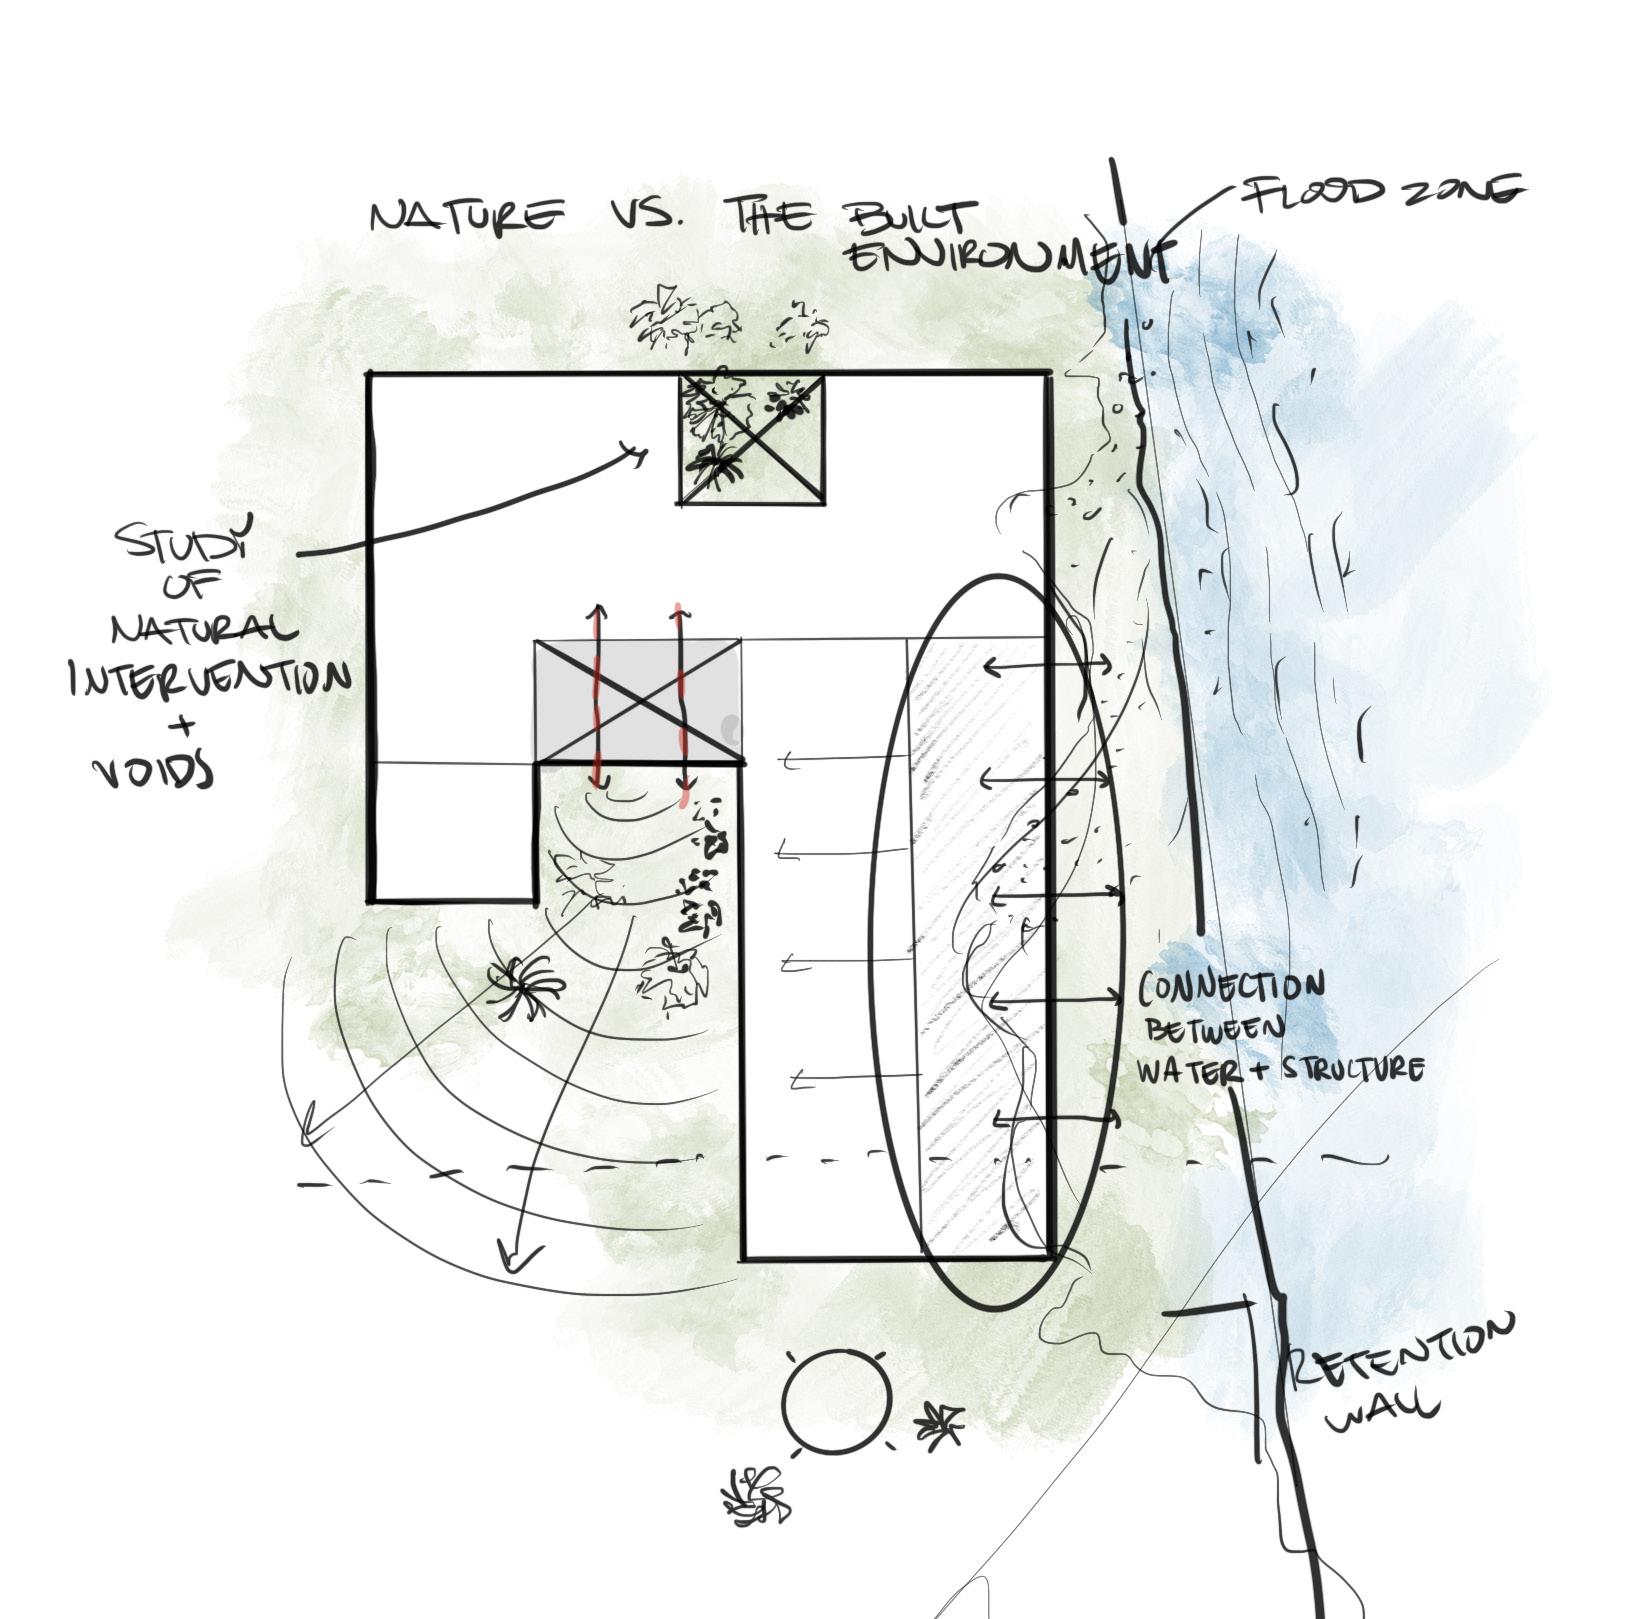 NATURE VS. THE BUILT
ENVIRONMENT
FLOOD ZONE
STUDY
OF
NATURAL
INTERVENTION
+
VOIDS
CONNECTION
BETWEEN
WATER + STRUCTURE
RETENTION
WALL